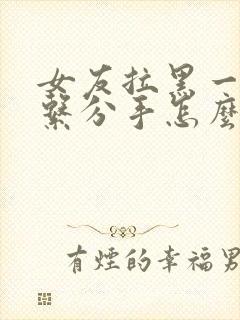 女友拉黑一
繫分手怎麼
有煙的幸福男